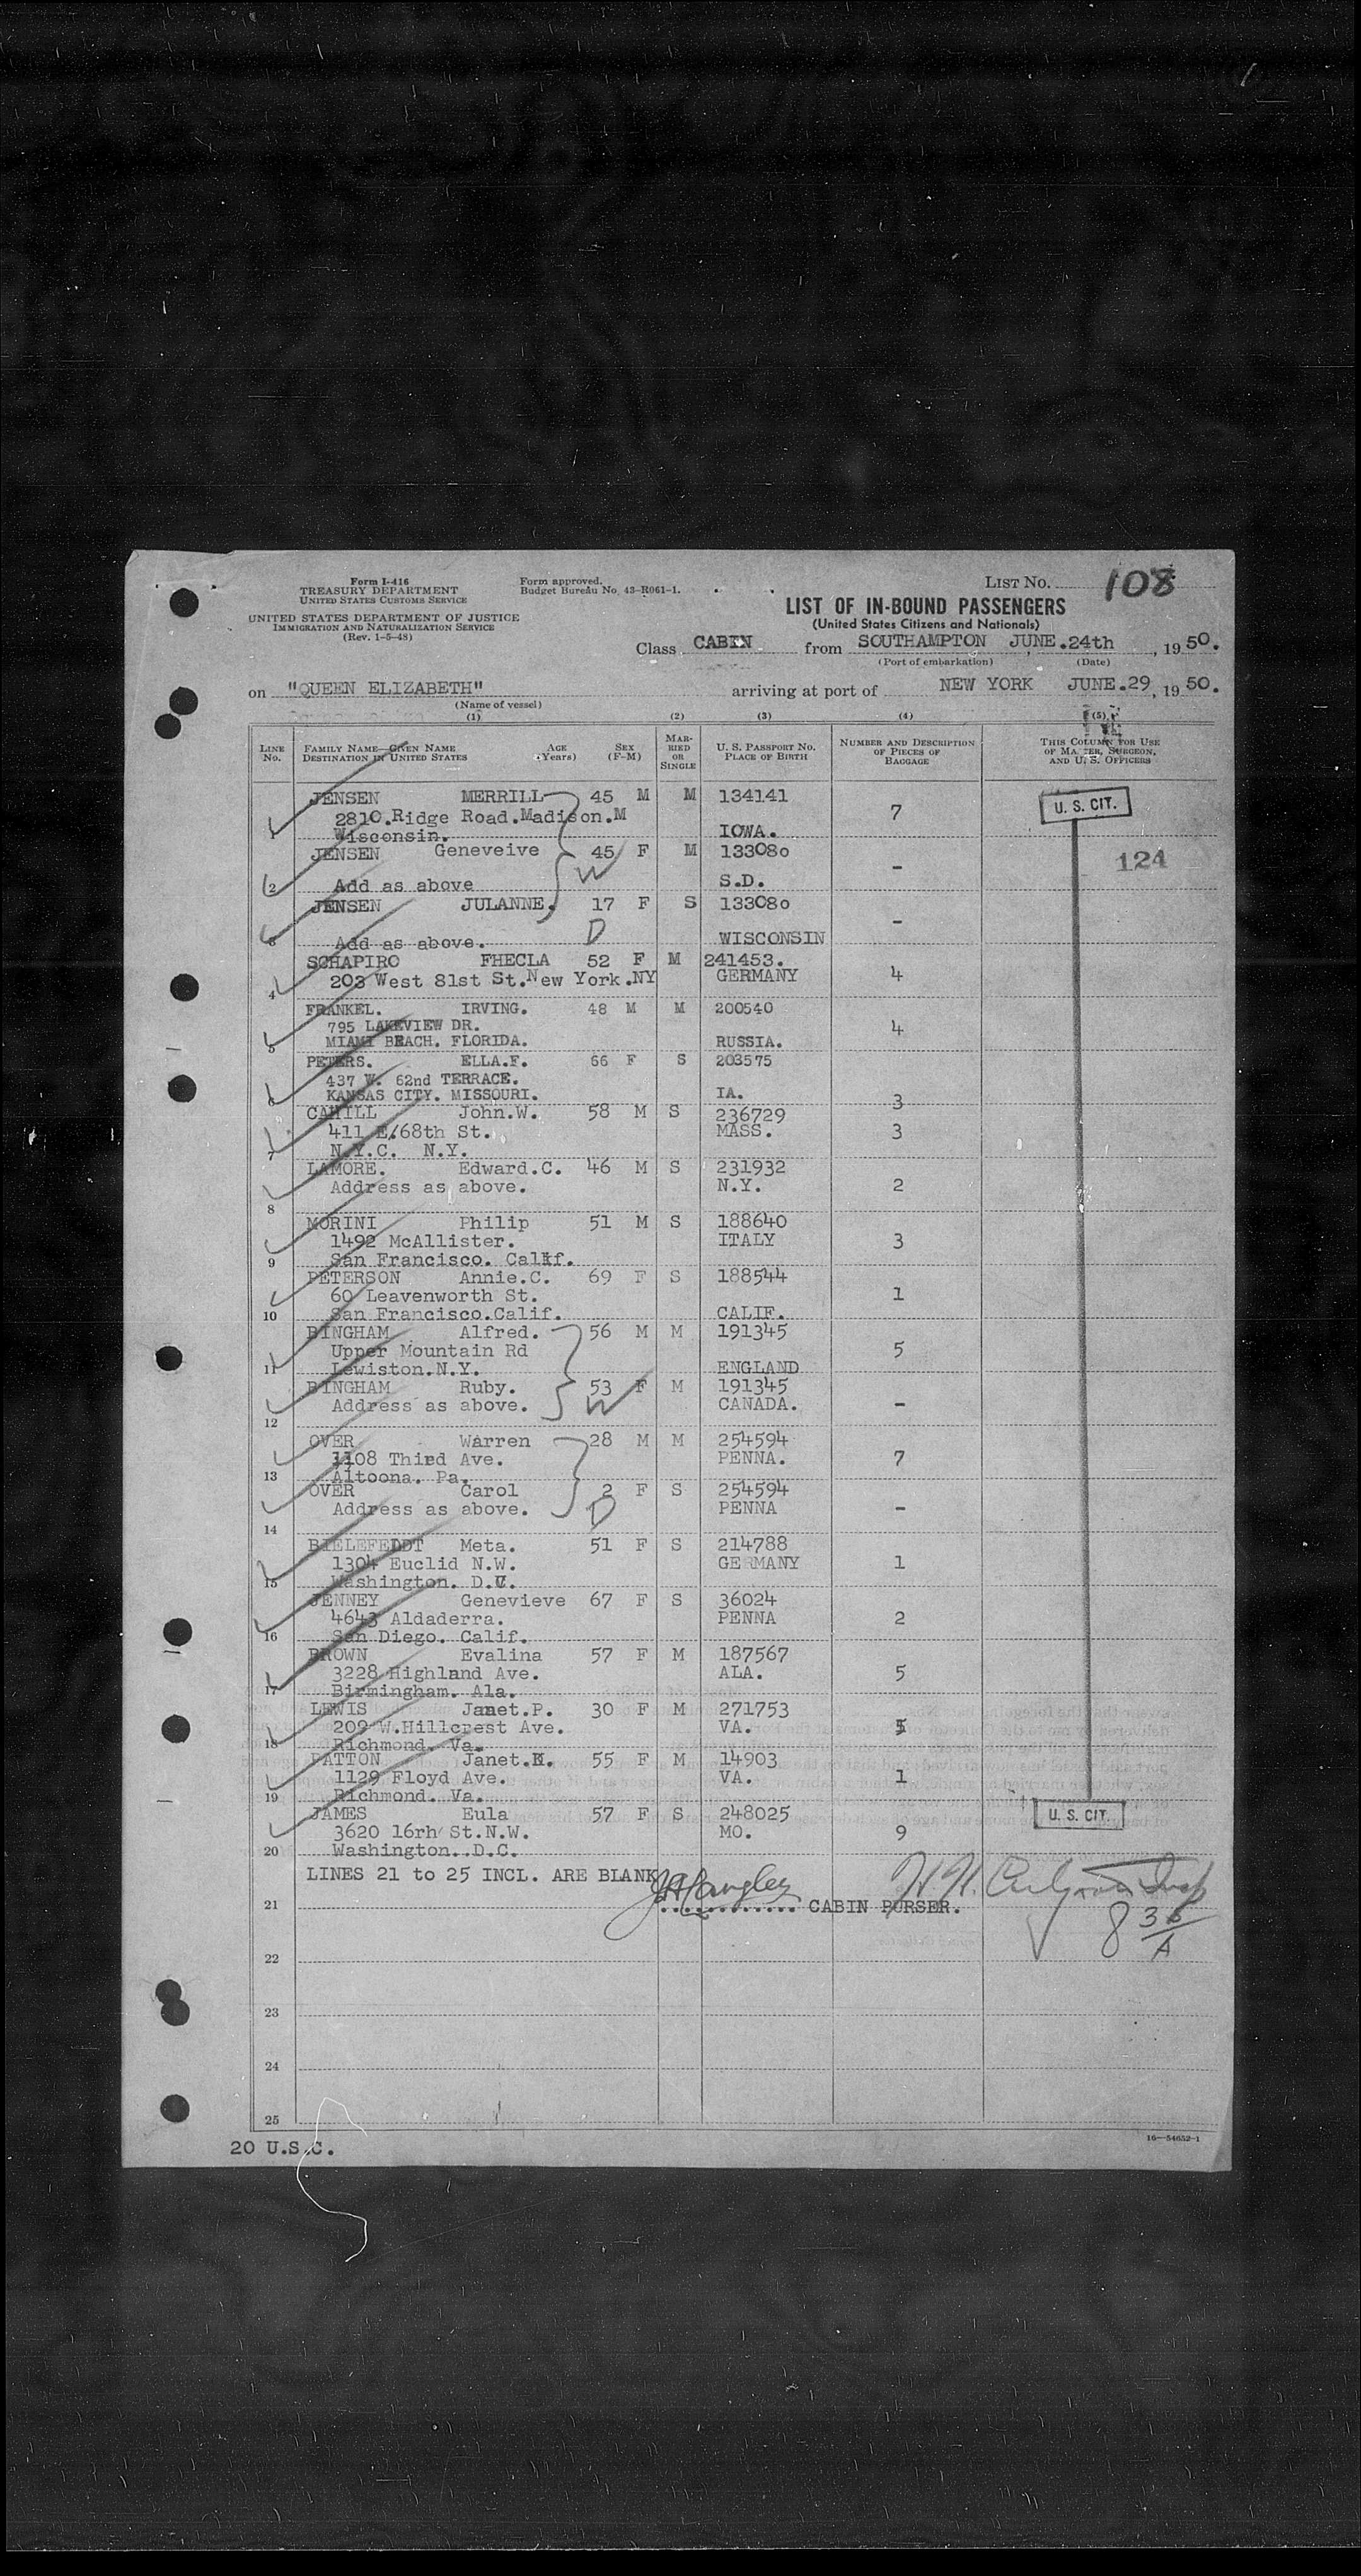 Form I-416
TREASURY DEPARTMENT
UNITED STATES CUSTOMS SERVICE
UNITED STATES DEPARTMENT OF JUSTICE
IMMIGRATION AND NATURALIZATION SERVICE
(Rev. 1-5-48)
Form approved.
Budget Bureau No. 43-R061-1.
LIST NO. 108
LIST OF IN-BOUND PASSENGERS
(United States Citizens and Nationals)
Class CABIN from SOUTHAMPTON JUNE.24th, 1950.
(Port of embarkation) (Date)
on "QUEEN ELIZABETH" arriving at port of NEW YORK JUNE.29, 1950.
(Name of vessel)
(1) (2) (3) (4) (5)
LINE NO. FAMILY NAME—GIVEN NAME DESTINATION IN UNITED STATES AGE (Years) SEX (F-M) MARRIED OR SINGLE U. S. PASSPORT NO. PLACE OF BIRTH NUMBER AND DESCRIPTION OF PIECES OF BAGGAGE THIS COLUMN FOR USE OF MASTER, SURGEON, AND U. S. OFFICERS
JENSEN MERRILL 45 M M 134141 7 U. S. CIT.
2810.Ridge Road.Madison.M
1 Wisconsin. IOWA.
JENSEN Geneveive 45 F M 133080 - 124
W
2 Add as above S.D.
JENSEN JULANNE. 17 F S 133080 -
D
3 Add as above. WISCONSIN
SCHAPIRO FHECLA 52 F M 241453. 4
4 203 West 81st St.New York.NY GERMANY
FRANKEL. IRVING. 48 M M 200540 4
795 LAKEVIEW DR.
5 MIAMI BEACH. FLORIDA. RUSSIA.
PETERS. ELLA.F. 66 F S 203575
437 W. 62nd TERRACE.
6 KANSAS CITY. MISSOURI. IA. 3
CAHILL John.W. 58 M S 236729
411 E/68th St. MASS. 3
7 N.Y.C. N.Y.
LAMORE. Edward.C. 46 M S 231932
Address as above. N.Y. 2
8
MORINI Philip 51 M S 188640
1492 McAllister. ITALY 3
9 San Francisco. Calif.
PETERSON Annie.C. 69 F S 188544
60 Leavenworth St. 1
10 San Francisco.Calif. CALIF.
BINGHAM Alfred. 56 M M 191345
Upper Mountain Rd 5
11 Lewiston.N.Y. ENGLAND
BINGHAM Ruby. 53 F M 191345
Address as above. W CANADA. -
12
OVER Warren 28 M M 254594
1108 Third Ave. PENNA. 7
13 Altoona. Pa.
OVER Carol 2 F S 254594
Address as above. D PENNA -
14
BIELEFELDT Meta. 51 F S 214788
1304 Euclid N.W. GERMANY 1
15 Washington. D.C.
JENNEY Genevieve 67 F S 36024
4643 Aldaderra. PENNA 2
16 San Diego. Calif.
BROWN Evalina 57 F M 187567
3228 Highland Ave. ALA. 5
17 Birmingham. Ala.
LEWIS Janet.P. 30 F M 271753
209 W.Hillcrest Ave. VA. 5
18 Richmond. Va.
PATTON Janet.K. 55 F M 14903
1129 Floyd Ave. VA. 1
19 Richmond. Va.
JAMES Eula 57 F S 248025 U. S. CIT.
3620 16rh St.N.W. MO. 9
20 Washington..D.C.
LINES 21 to 25 INCL. ARE BLANK
21 CABIN PURSER.
22
23
24
25
20 U.S.C.
16—54652-1